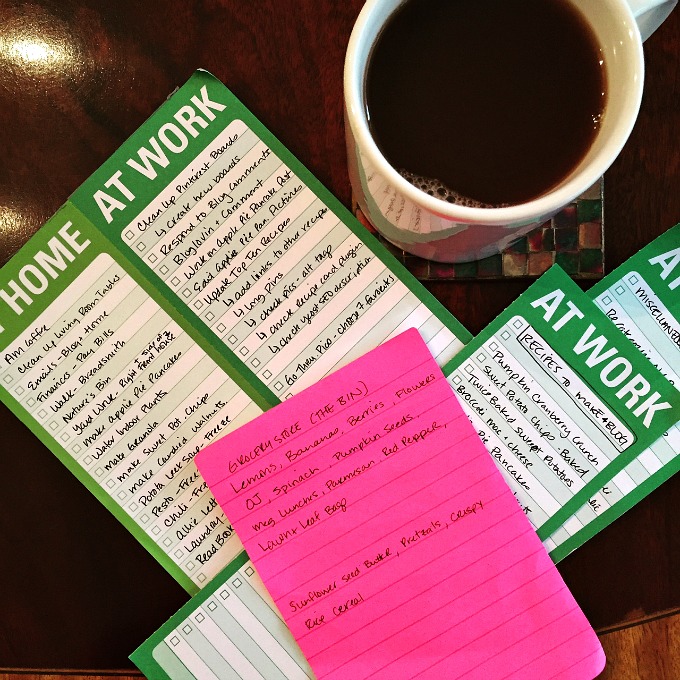 HOME
Am coffee
Clean Up Living Room Tables
Emails - Blog + Home
Finances - Pay Bills
Walk Breadsmith
Nature's Bin
Make Apple Pie Pancakes
Water Indoor Plants
Make Granola
Make Sweet Pot Chips
Make Candied Walnuts
Potato Leek Soup - Freeze
Pesto - Freeze
Chili - Fre
Allie
Laundry
Read Book
AT WORK
Clean Up Pinterest Boards
↳ Create new boards
Respond to Blog Comments
Bloglovin + Comment
Work on Apple Pie Pancake Post
Send Apple Pie Pan Pictures
Update Top Ten Recipes
↳ add links to other recipes
↳ long pins
↳ check pics - alt tag
↳ check recipe card plugin
↳ check yoast SEO description
Go Thru Pics - choose 7 favorites
GROCERY STORE (THE BIN)
Lemons, Bananas, Berries, Flowers
OJ, Spinach, Pumpkin Seeds,
Meg Lunches, Parmesan, Red Pepper,
Leaf Bags
Sunflower Seed Butter, Pretzels, Crispy
Rice Cereal
AT WORK
RECIPES TO MAKE + BLOG
Pumpkin Cranberry Crunch
Sweet Potato Chips, Baked
Twice Baked Sweet Potatoes
Mac + cheese
Pie Pancakes
AT
MISCELLANEO